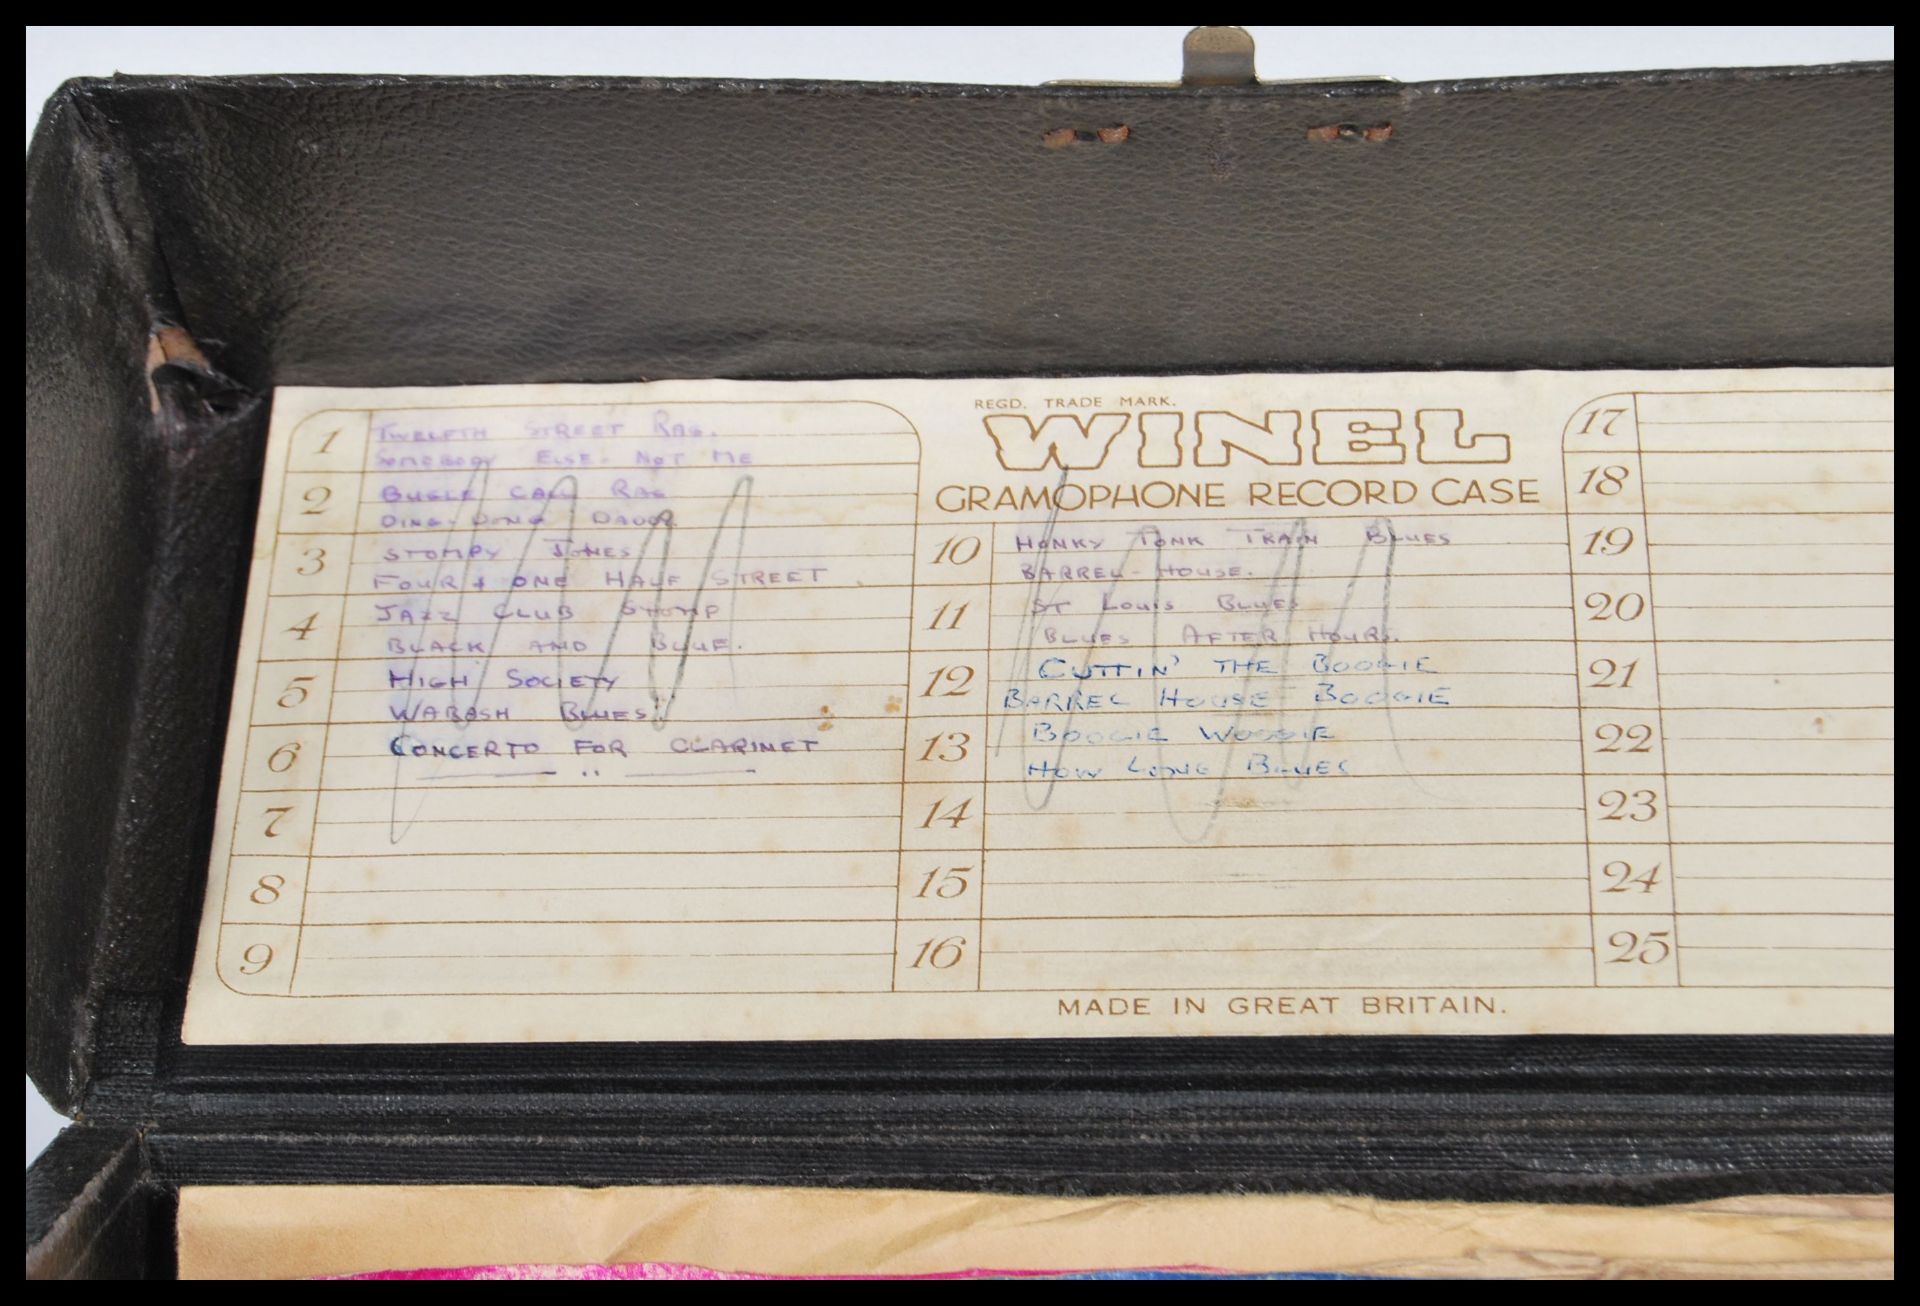 1
TWELFTH STREET RAG.
SOMEBODY ELSE - NOT ME
2
BUGLE CALL RAG
DING-DONG DADDY.
3
STOMPY JONES
FOUR & ONE HALF STREET.
4
JAZZ CLUB STOMP
BLACK AND BLUE.
5
HIGH SOCIETY
WABASH BLUES.
6
CONCERTO FOR CLARINET
—— " ——
7
8
9
REGD. TRADE MARK.
WINEL
GRAMOPHONE RECORD CASE
10
HONKY TONK TRAIN BLUES
BARREL-HOUSE.
11
ST LOUIS BLUES
BLUES AFTER HOURS.
12
CUTTIN' THE BOOGIE
BARREL HOUSE BOOGIE
13
BOOGIE WOOGIE
HOW LONG BLUES
14
15
16
17
18
19
20
21
22
23
24
25
MADE IN GREAT BRITAIN.